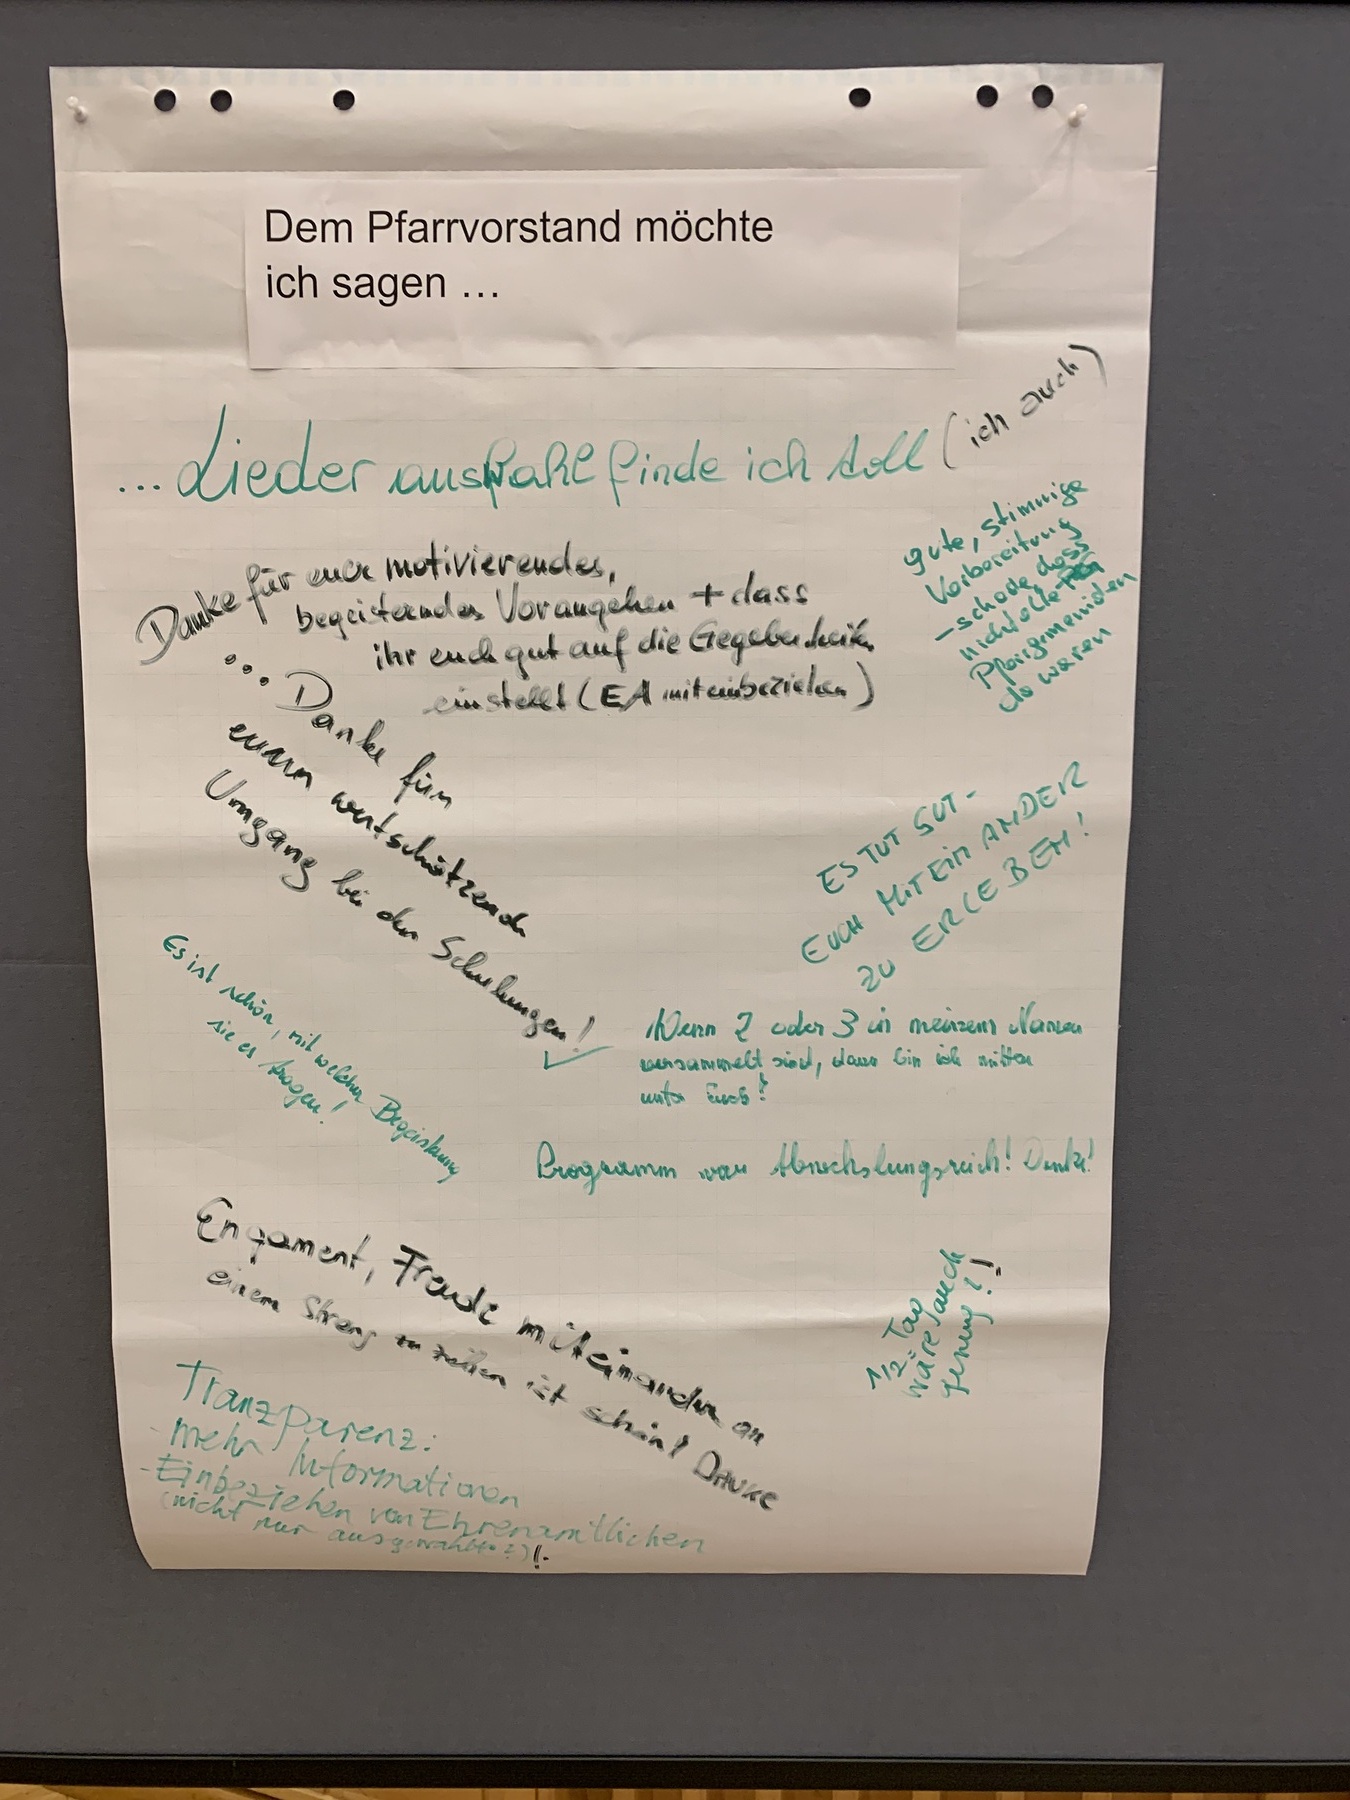 Dem Pfarrvorstand möchte
ich sagen ...
... Liederauswahl finde ich toll (ich auch)
gute, stimmige
Vorbereitung
- schade dass
nicht alle
Pfarrgemeinden
da waren
Danke für euer motivierendes,
begeisterndes Vorangehen + dass
ihr euch gut auf die Gegebenheiten
einstellt (EA miteinbeziehen)
... Danke für
euren wertschätzenden
Umgang bei den Schulungen!
ES TUT GUT -
EUCH MITEINANDER
ZU ERLEBEN!
Es ist schön, mit welcher Begeisterung
sie es tragen!
Wenn 2 oder 3 in meinem Namen
versammelt sind, dann bin ich mitten
unter Euch!
Programm war Abwechslungsreich! Danke!
Engament, Freude miteinander an
einem Strang zu ziehen ist schön! DANKE
1/2-Tag
wäre auch
genug!!
Tranzparenz:
- mehr Informationen
- Einbeziehen von Ehrenamtlichen
(nicht nur ausgewählte?)!